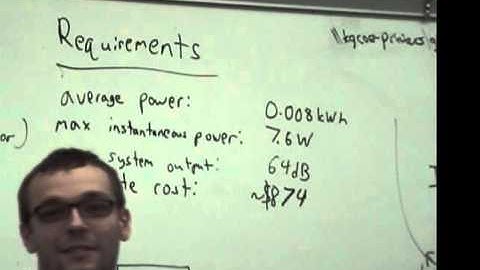 Requirements
average power: 0.008kWh
or) max instantaneous power: 7.6W
system output: 64dB
cost: ~$874